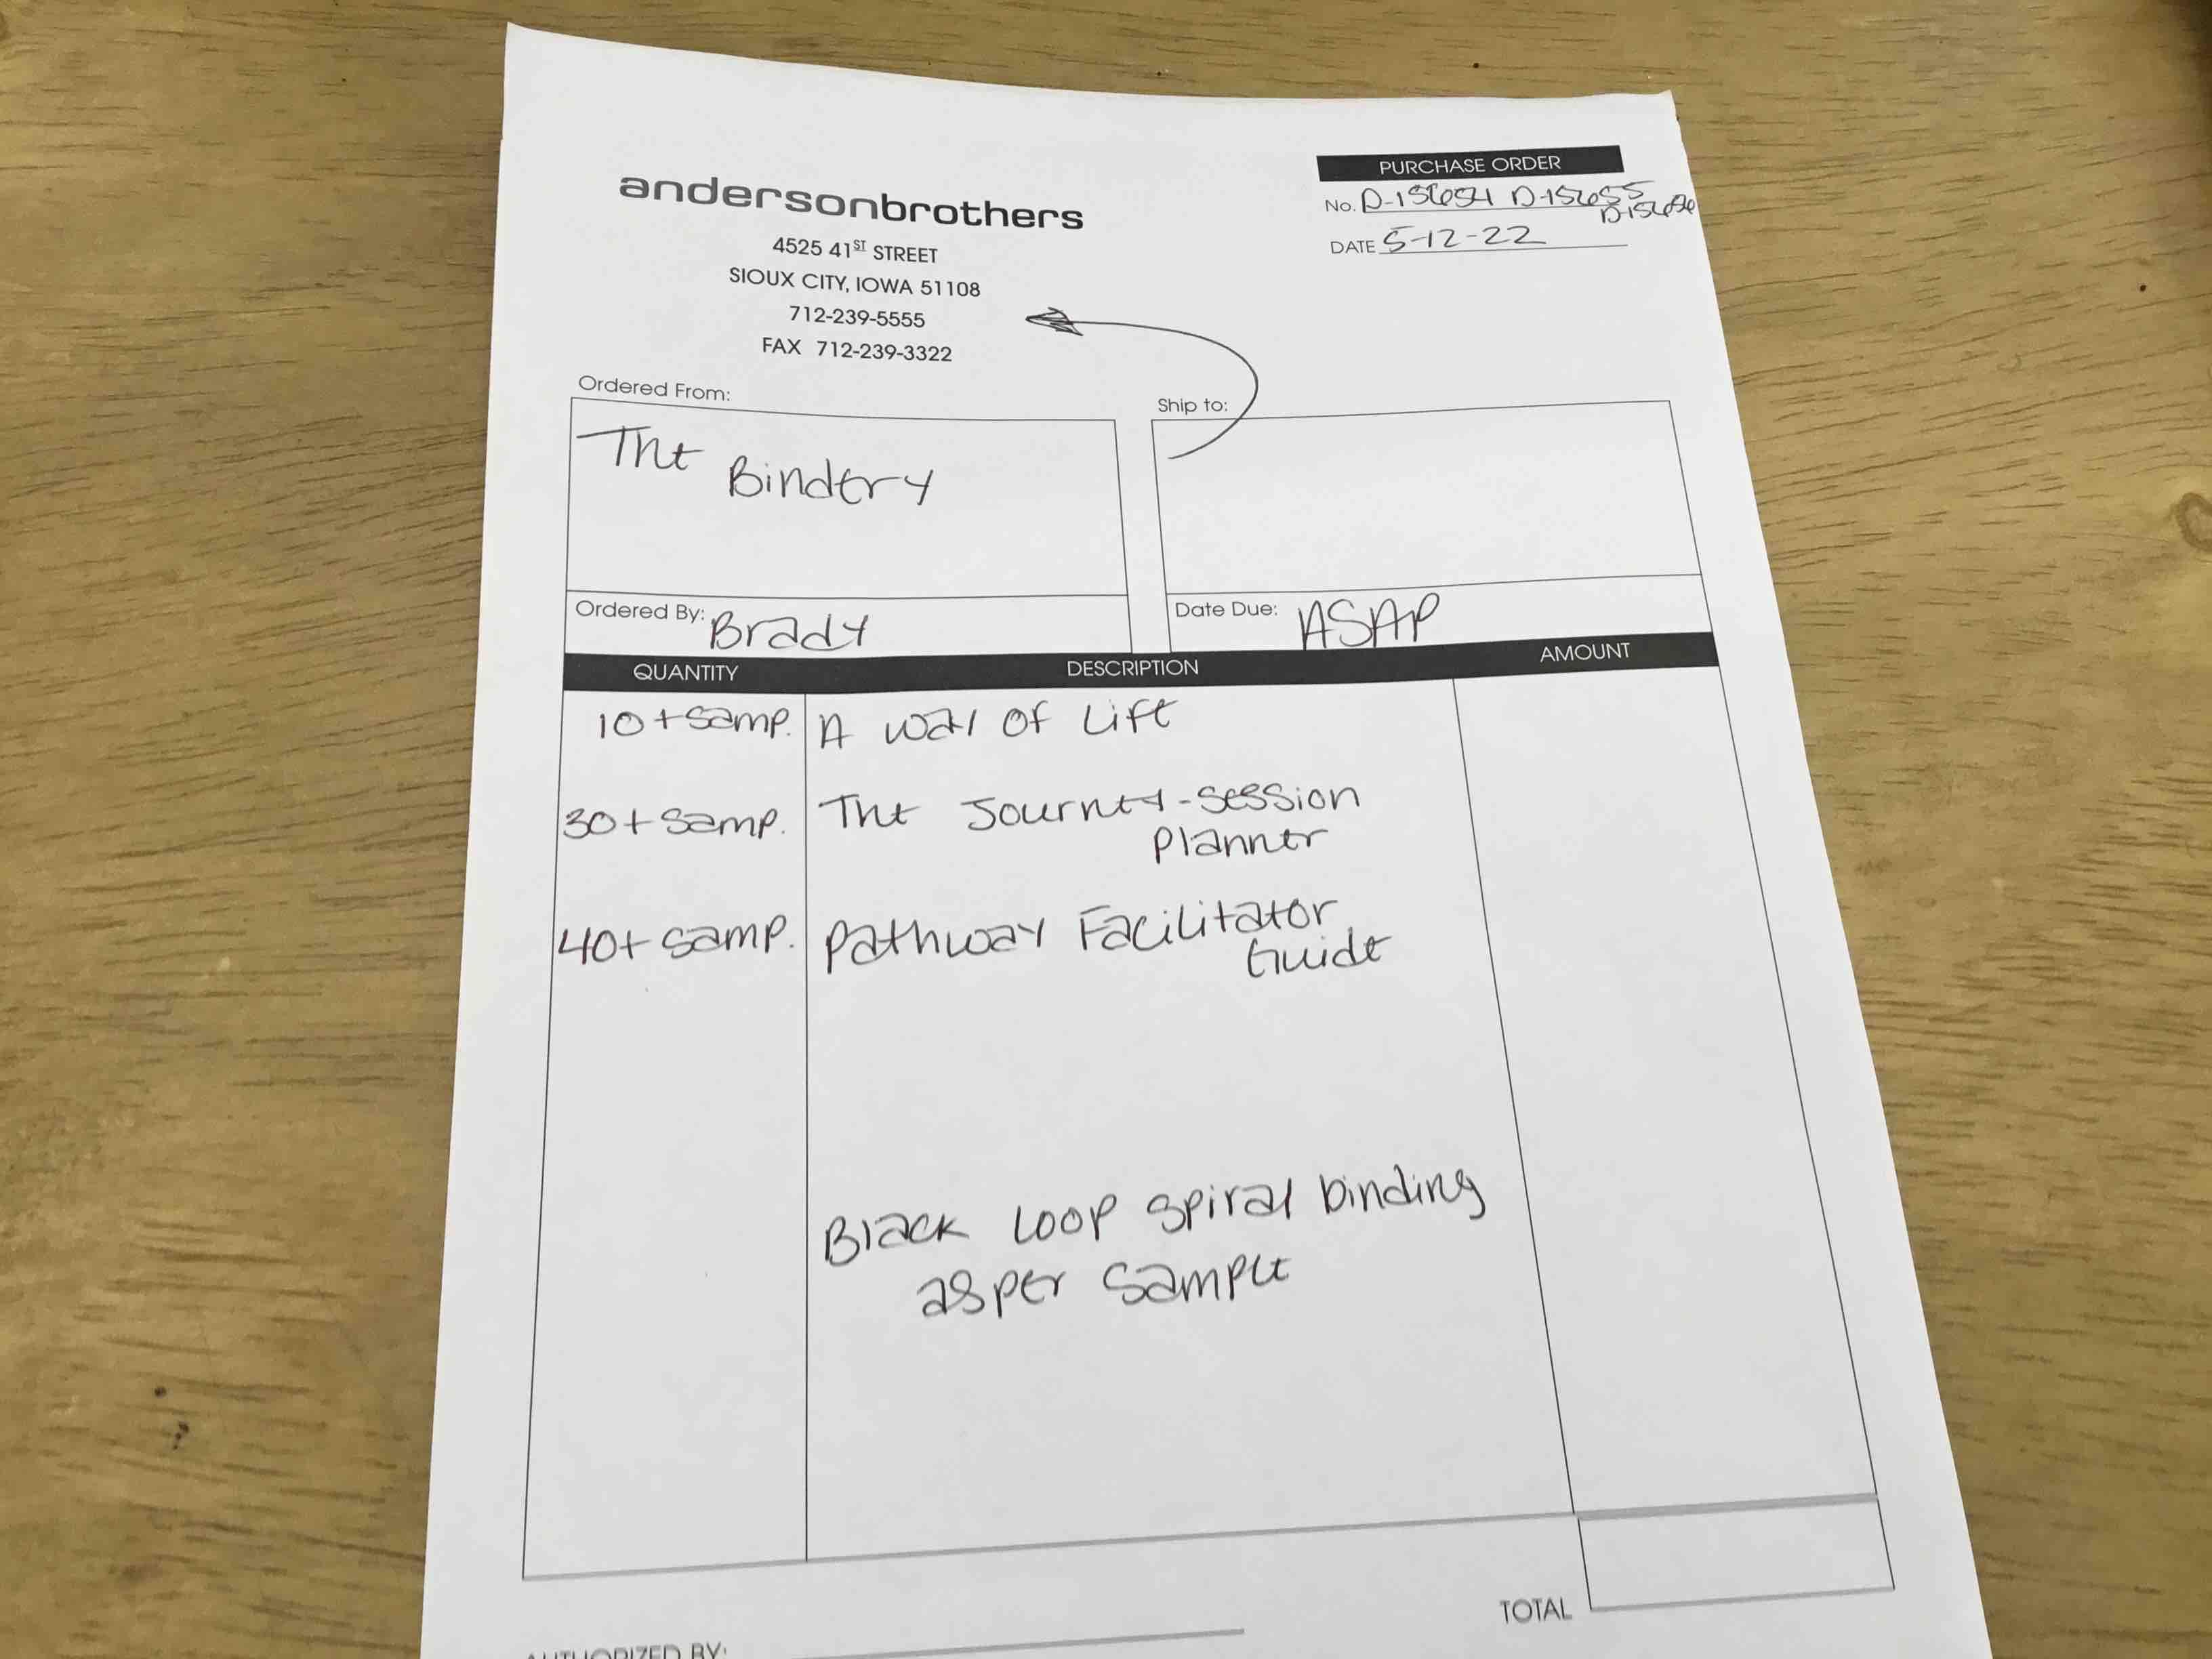 andersonbrothers
4525 41ST STREET
SIOUX CITY, IOWA 51108
712-239-5555
FAX 712-239-3322
PURCHASE ORDER
No. D-15654 D-15655
D-15656
DATE 5-12-22
Ordered From:
The Bindery
Ship to:
Ordered By: Brady
Date Due: ASAP
QUANTITY DESCRIPTION AMOUNT
10 + samp. A way of Life
30 + samp. The Journey-session
Planner
40 + samp. Pathway Facilitator
Guide
Black Loop spiral binding
as per sample
TOTAL
AUTHORIZED BY: